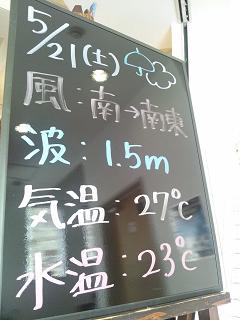 5/21(土)
風:南→南東
波:1.5m
気温:27℃
水温:23℃